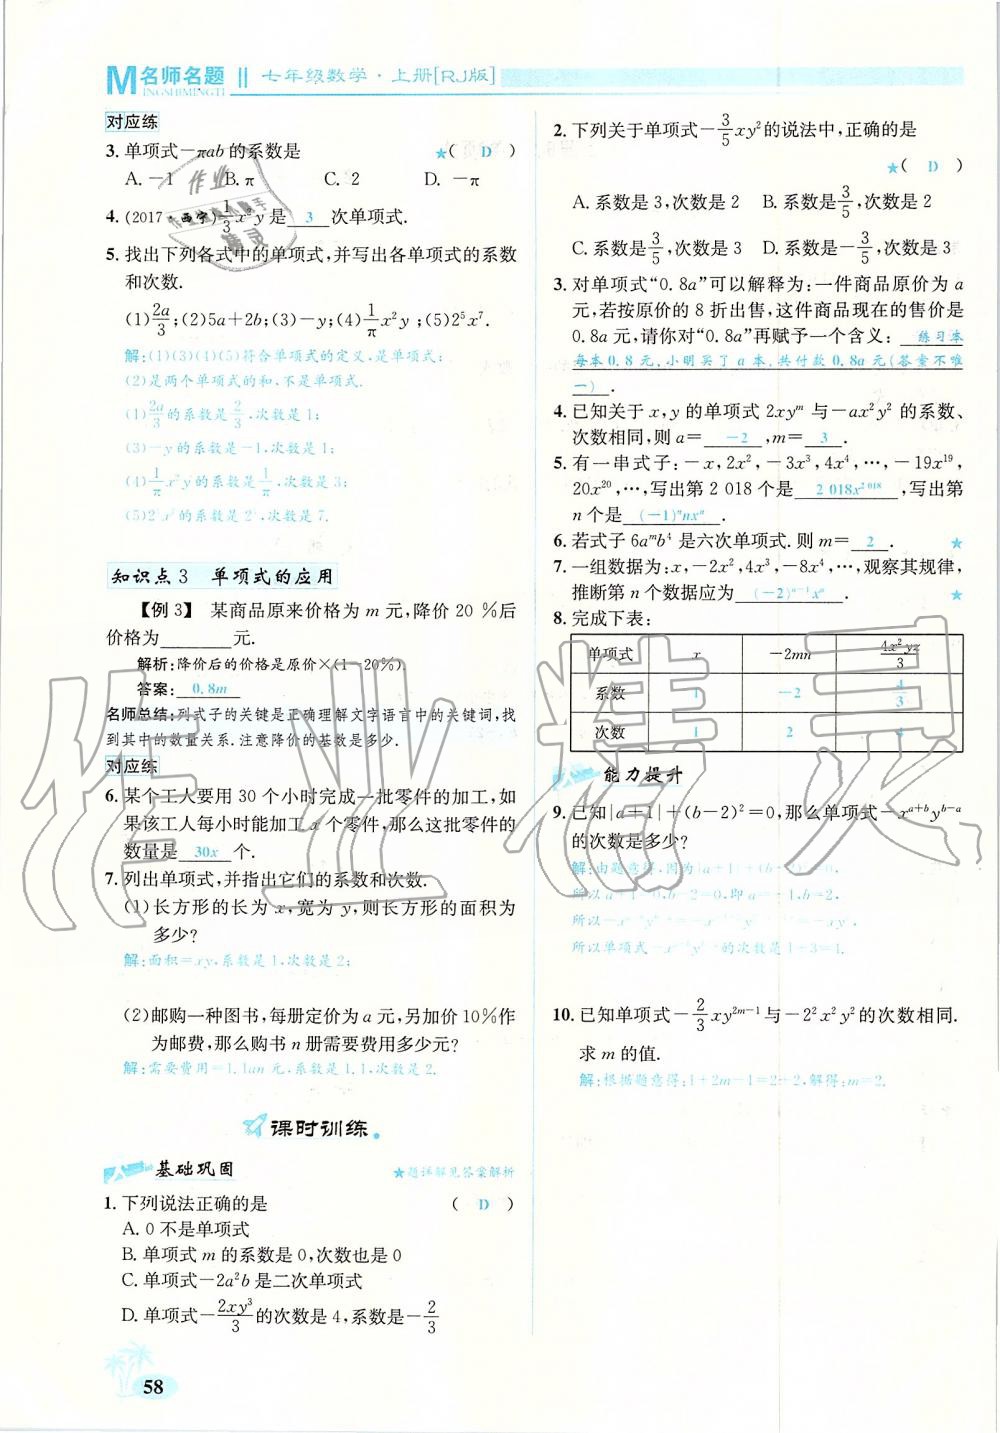 M名师名题 七年级数学·上册[RJ版]
INGSHIMINGTI
对应练
3. 单项式-πab的系数是 ★( D )
A. -1 B. π C. 2 D. -π
4. (2017·西宁)1/3x²y是 3 次单项式.
5. 找出下列各式中的单项式,并写出各单项式的系数
和次数.
(1)2a/3;(2)5a+2b;(3)-y;(4)1/π x²y;(5)2⁵x⁷.
解:(1)(3)(4)(5)符合单项式的定义,是单项式;
(2)是两个单项式的和,不是单项式.
(1)2a/3的系数是2/3,次数是1;
(3)-y的系数是-1,次数是1;
(4)1/π x²y的系数是1/π,次数是3;
(5)2⁵x⁷的系数是2⁵,次数是7.
知识点3 单项式的应用
【例3】 某商品原来价格为m元,降价20%后
价格为______元.
解析:降价后的价格是原价×(1-20%)
答案: 0.8m
名师总结:列式子的关键是正确理解文字语言中的关键词,找
到其中的数量关系.注意降价的基数是多少.
对应练
6. 某个工人要用30个小时完成一批零件的加工,如
果该工人每小时能加工x个零件,那么这批零件的
数量是 30x 个.
7. 列出单项式,并指出它们的系数和次数.
(1)长方形的长为x,宽为y,则长方形的面积为
多少?
解:面积=xy,系数是1,次数是2;
(2)邮购一种图书,每册定价为a元,另加价10%作
为邮费,那么购书n册需要费用多少元?
解:需要费用=1.1an元,系数是1.1,次数是2.
课时训练
基础巩固 ★题详解见答案解析
1. 下列说法正确的是 ( D )
A. 0不是单项式
B. 单项式m的系数是0,次数也是0
C. 单项式-2a²b是二次单项式
D. 单项式-2xy³/3的次数是4,系数是-2/3
58
2. 下列关于单项式-3/5xy²的说法中,正确的是
★( D )
A. 系数是3,次数是2 B. 系数是3/5,次数是2
C. 系数是3/5,次数是3 D. 系数是-3/5,次数是3
3. 对单项式“0.8a”可以解释为:一件商品原价为a
元,若按原价的8折出售,这件商品现在的售价是
0.8a元,请你对“0.8a”再赋予一个含义: 练习本
每本0.8元,小明买了a本,共付款0.8a元(答案不唯
一) .
4. 已知关于x,y的单项式2xyᵐ与-ax²y²的系数、
次数相同,则a= -2 ,m= 3 .
5. 有一串式子:-x,2x²,-3x³,4x⁴,…,-19x¹⁹,
20x²⁰,…,写出第2 018个是 2 018x²⁰¹⁸ ,写出第
n个是 (-1)ⁿnxⁿ .
6. 若式子6aᵐb⁴是六次单项式.则m= 2 . ★
7. 一组数据为:x,-2x²,4x³,-8x⁴,…,观察其规律,
推断第n个数据应为 (-2)ⁿ⁻¹xⁿ . ★
8. 完成下表:
单项式 x -2mn 4x²yz/3
系数 1 -2 4/3
次数 1 2 4
能力提升
9. 已知|a+1|+(b-2)²=0,那么单项式-xᵃ⁺ᵇyᵇ⁻ᵃ
的次数是多少?
解:由题意得,因为|a+1|+(b-2)²=0,
所以a+1=0,b-2=0,即a=-1,b=2,
所以单项式-xᵃ⁺ᵇyᵇ⁻ᵃ的次数是1+3=4.
10. 已知单项式-2/3xy²ᵐ⁻¹与-2²x²y²的次数相同.
求m的值.
解:根据题意得:1+2m-1=2+2,解得:m=2.